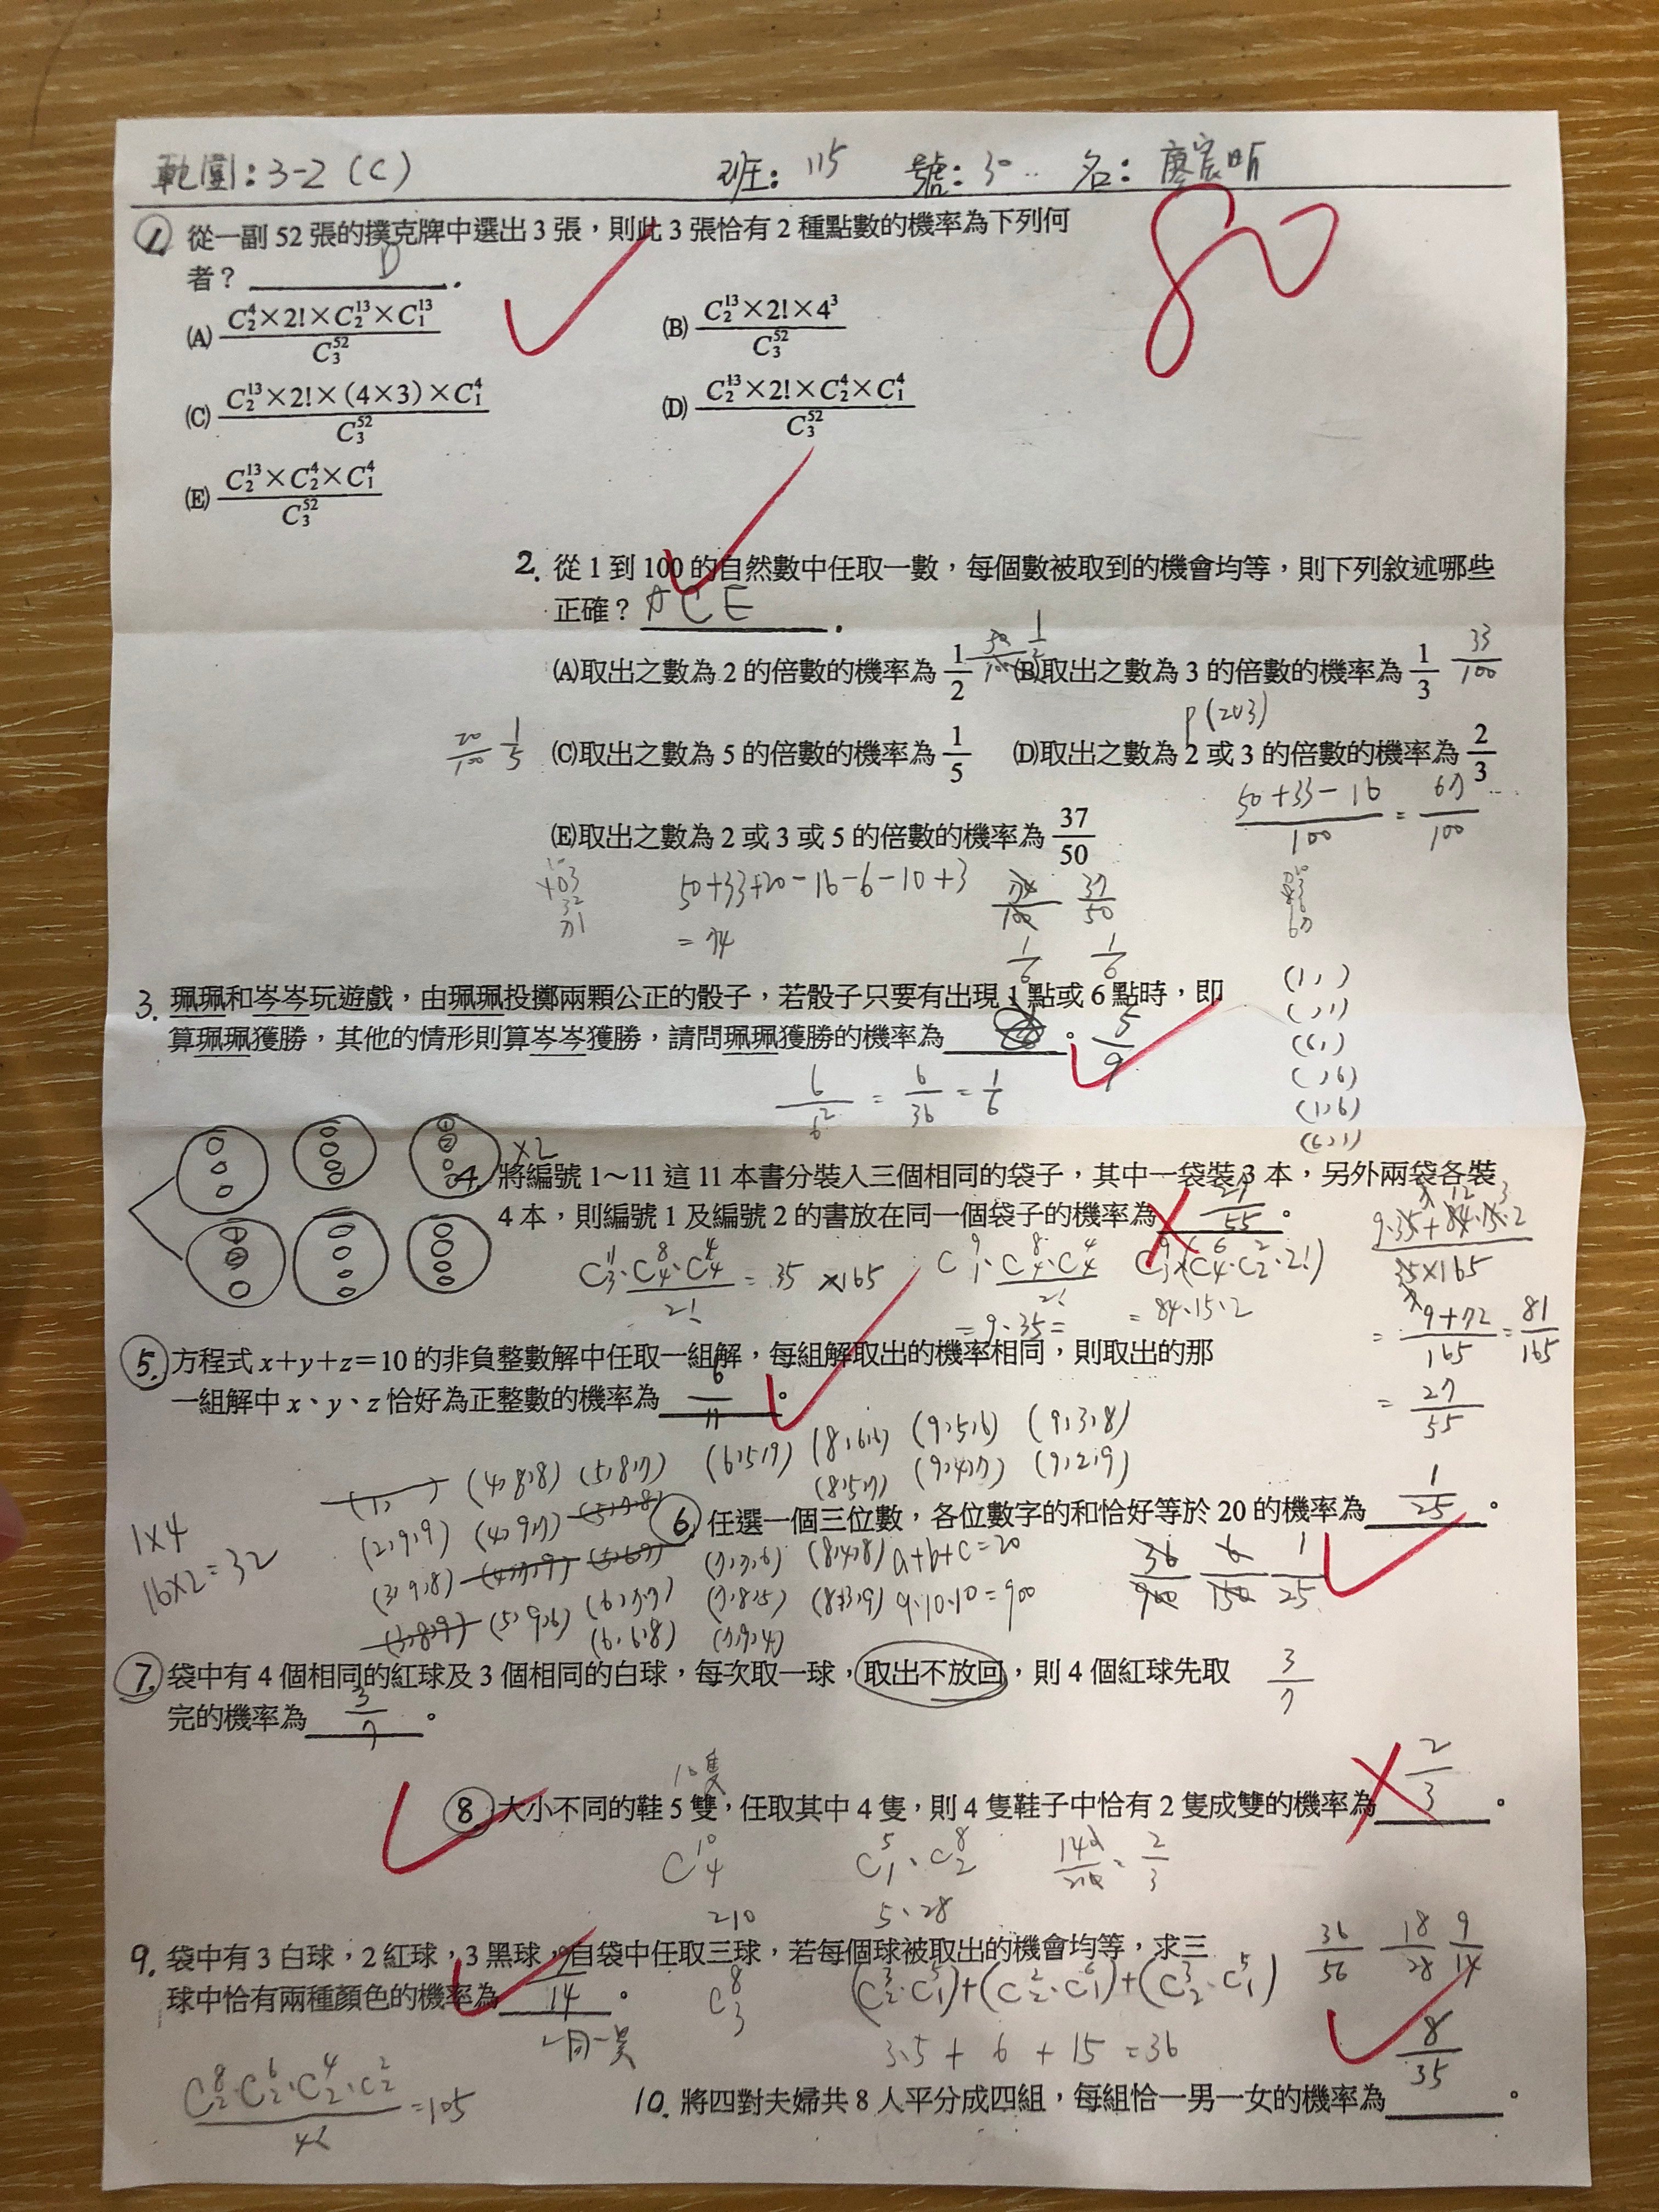 範圍:3-2(C) 班:115 號:30 名:廖宸昕
80
1. 從一副 52 張的撲克牌中選出 3 張,則此 3 張恰有 2 種點數的機率為下列何
者? D .
(A) C₂⁴×2!×C₂¹³×C₁¹³ / C₃⁵² (B) C₂¹³×2!×4³ / C₃⁵²
(C) C₂¹³×2!×(4×3)×C₁⁴ / C₃⁵² (D) C₂¹³×2!×C₂⁴×C₁⁴ / C₃⁵²
(E) C₂¹³×C₂⁴×C₁⁴ / C₃⁵²
2. 從 1 到 100 的自然數中任取一數,每個數被取到的機會均等,則下列敘述哪些
正確? ACE .
(A)取出之數為 2 的倍數的機率為 1/2 50/100 1/2 (B)取出之數為 3 的倍數的機率為 1/3 33/100
P(2∪3)
20/100 1/5 (C)取出之數為 5 的倍數的機率為 1/5 (D)取出之數為 2 或 3 的倍數的機率為 2/3
50+33-16 / 100 = 67/100
(E)取出之數為 2 或 3 或 5 的倍數的機率為 37/50
50+33+20-16-6-10+3 74/100 37/50
=74
1/6 1/6
3. 珮珮和岑岑玩遊戲,由珮珮投擲兩顆公正的骰子,若骰子只要有出現 1 點或 6 點時,即
算珮珮獲勝,其他的情形則算岑岑獲勝,請問珮珮獲勝的機率為 。 5/9
6/6² = 6/36 = 1/6
(1, )
( ,1)
(6, )
( ,6)
(1,6)
(6,1)
×2
4. 將編號 1~11 這 11 本書分裝入三個相同的袋子,其中一袋裝 3 本,另外兩袋各裝
4 本,則編號 1 及編號 2 的書放在同一個袋子的機率為 27/55 。
C₃¹¹·C₄⁸·C₄⁴/2! = 35×165 C₁⁹·C₄⁸·C₄⁴/2! C₃⁹×(C₄⁶·C₂²·2!)
=9·35= =84·15·2
9·35+84·15·2 / 35×165
= 9+72 / 165 = 81/165
= 27/55
5. 方程式 x+y+z=10 的非負整數解中任取一組解,每組解取出的機率相同,則取出的那
一組解中 x、y、z 恰好為正整數的機率為 6/11 。
(4,8,8) (5,8,7) (6,5,9) (8,6,6) (9,5,6) (9,3,8)
(8,5,7) (9,4,7) (9,2,9)
6. 任選一個三位數,各位數字的和恰好等於 20 的機率為 1/25 。
1×4
16×2=32
(2,9,9) (4,9,7) (5,7,8)
(3,9,8) (4,7,9) (5,6,9) (7,7,6) (8,4,8) a+b+c=20 36/900 6/150 1/25
(3,8,9) (5,9,6) (6,7,7) (7,8,5) (8,3,9) 9·10·10=900
(6,6,8) (7,9,4)
7. 袋中有 4 個相同的紅球及 3 個相同的白球,每次取一球,取出不放回,則 4 個紅球先取
完的機率為 3/7 。 3/7
10隻
8. 大小不同的鞋 5 雙,任取其中 4 隻,則 4 隻鞋子中恰有 2 隻成雙的機率為 2/3 。
C₄¹⁰ C₁⁵·C₂⁸ 140/210 = 2/3
210 5·28
9. 袋中有 3 白球,2 紅球,3 黑球,自袋中任取三球,若每個球被取出的機會均等,求三
球中恰有兩種顏色的機率為 9/14 。
C₃⁸ (C₂³·C₁⁵)+(C₂²·C₁⁶)+(C₂³·C₁⁵) 36/56 18/28 9/14
3·5 + 6 + 15 = 36
C₂⁸·C₂⁶·C₂⁴·C₂² / 4! =105
10. 將四對夫婦共 8 人平分成四組,每組恰一男一女的機率為 8/35 。